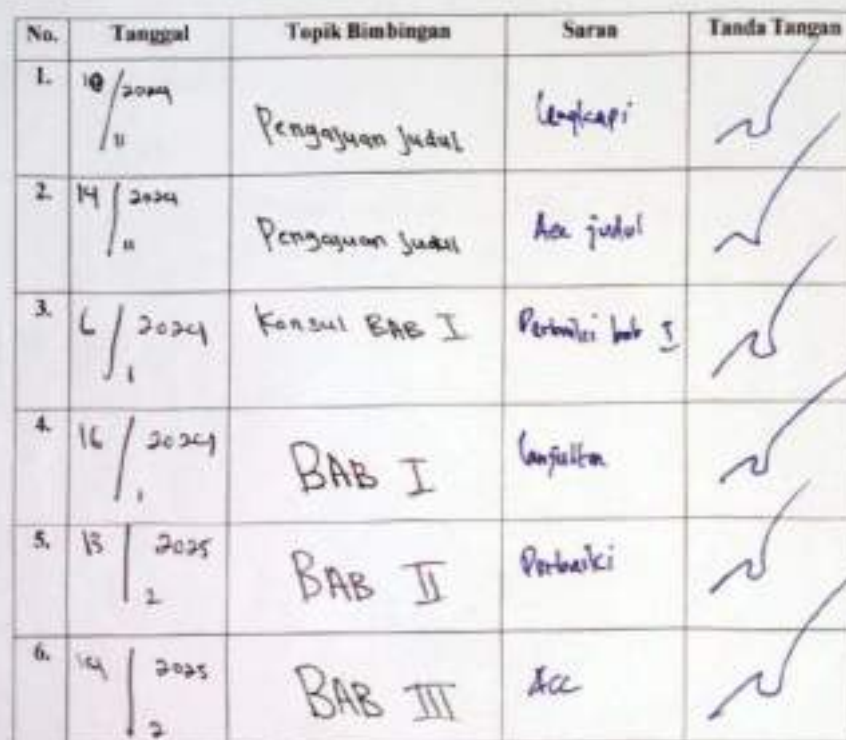 No. Tanggal Topik Bimbingan Saran Tanda Tangan
1. /2024 Pengajuan Judul Lengkapi
11
2. 14/2024 Pengajuan Judul Acc judul
11
3. 6/2024 Konsul BAB I Perbaiki bab I
1
4. 16/2024 BAB I Lanjutkan
1
5. 13/2025 BAB II Perbaiki
2
6. /2025 BAB III Acc
2